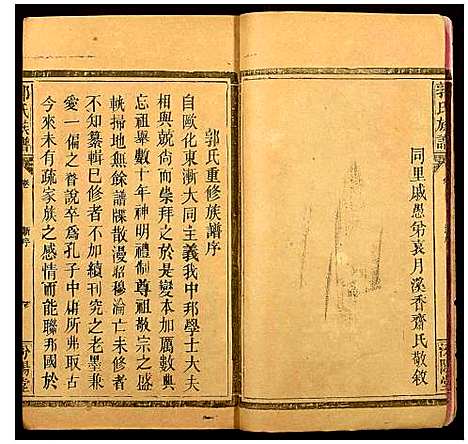 郭氏族譜
同里戚愚弟袁月溪香齋氏敬敘
汾陽堂
郭氏重修族譜序
自歐化東漸大同主義我中邦學士大夫
相與兢尚而崇拜之於是變本加厲數典
忘祖舉數十年神明禮制尊祖敬宗之盛
軌掃地無餘譜牒散漫昭穆淪亡未修者
不知纂輯已修者不加續刊究之老墨兼
愛一偏之眘說卒爲孔子中庸所弗取古
今來未有疏家族之感情而能聯邦國於
郭氏族譜
汾陽堂